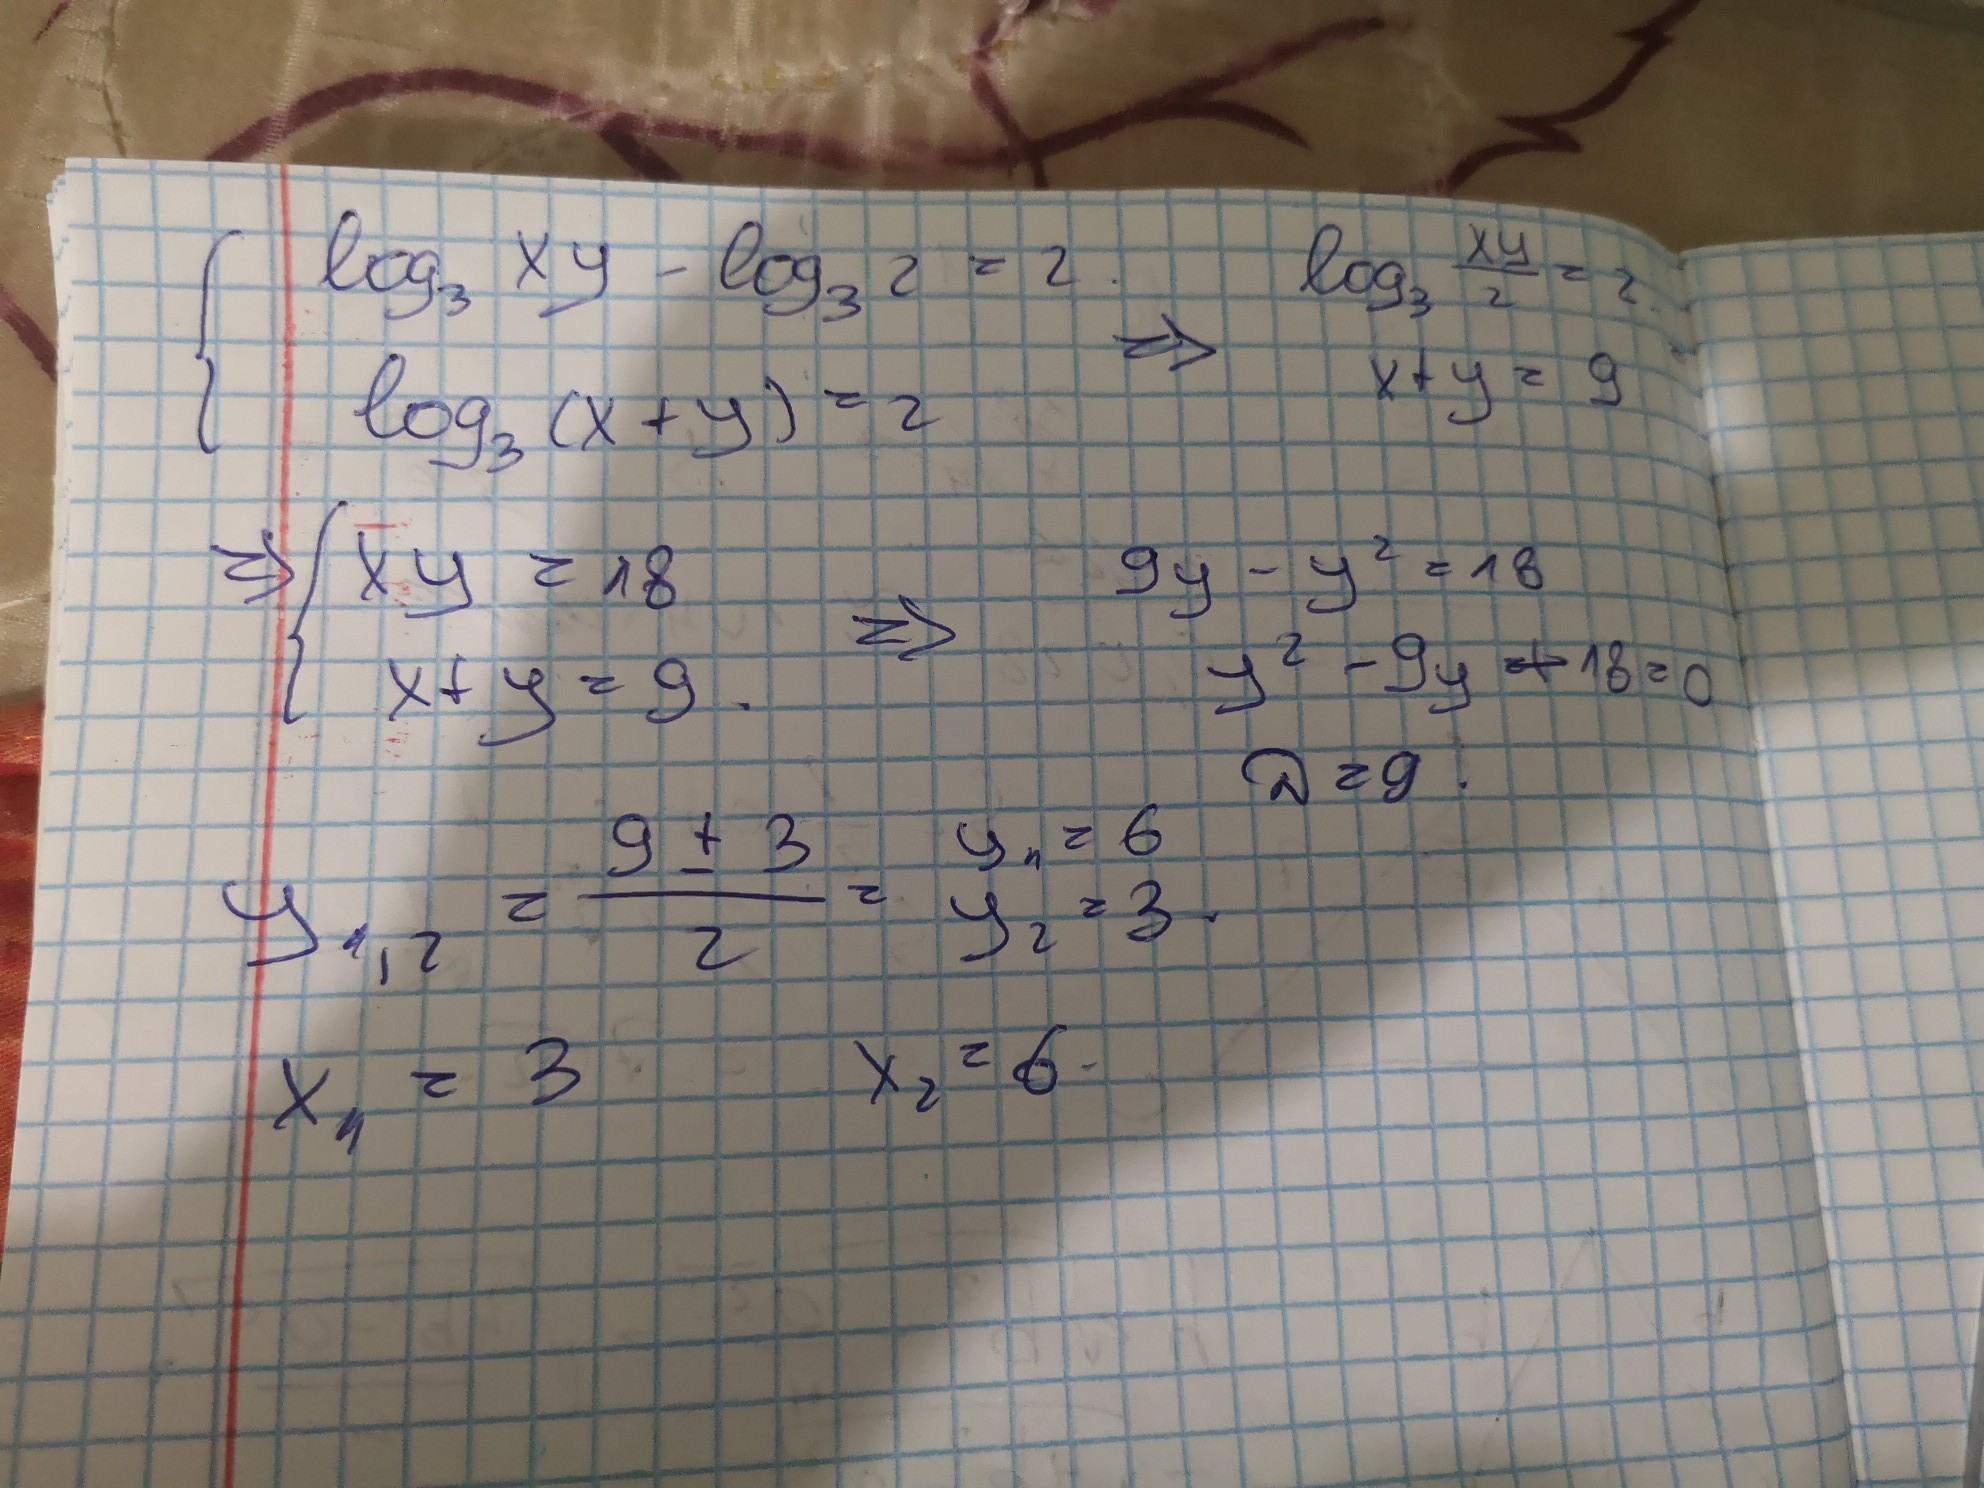 log₃ xy - log₃ 2 = 2.
log₃ (x + y) = 2
⇒ log₃ xy/2 = 2.
x + y = 9
⇒ xy = 18
x + y = 9.
⇒ 9y - y² = 18
y² - 9y + 18 = 0
D = 9.
y₁,₂ = (9 ± 3)/2 = y₁ = 6
y₂ = 3.
x₁ = 3 x₂ = 6.